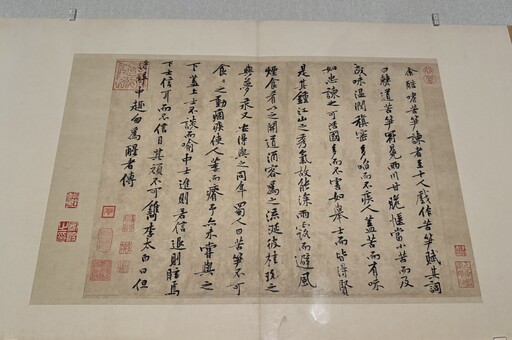 余酷嗜苦筍諫者至十人戲作苦筍賦其詞
曰僰道苦筍冠冕兩川甘脆愜當小苦而反
成味溫潤稹密多啗而不疾人蓋苦而有味
如忠諫之可活國多而不害如舉士而皆得賢
是其鍾江山之秀氣故能深雨露而避風
煙食肴以之開道酒客為之流涎彼桂玫之
與夢永又安得與之同年蜀人曰苦筍不可
食食之動痼疾使人萎而瘠予亦未嘗與之
下蓋上士不談而喻中士進則若信退則眩焉
下士信耳而不信目其頑不可鐫李太白曰但
得醉中趣勿為醒者傳